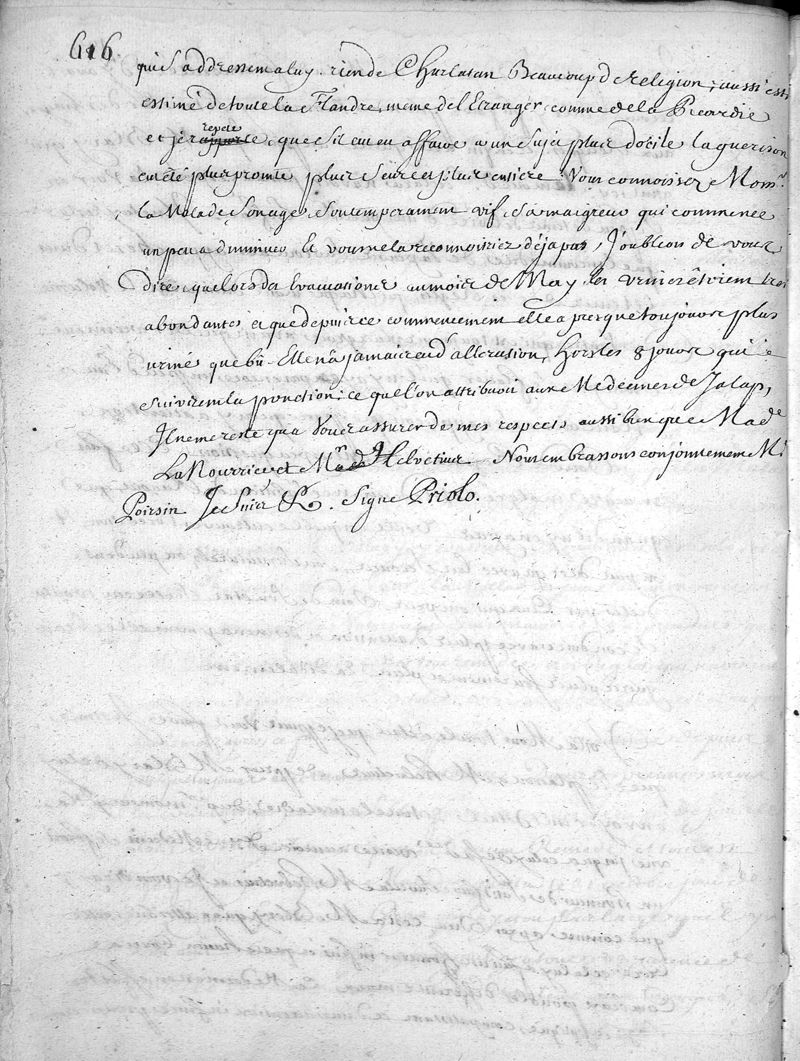 616.
qui s'addressent a luy. rien de Charlatan Beaucoup de Religion; aussi est
estimé de toute la Flandre, meme de l'Etranger comme de la Picardie
et je repete que s'il eut eu affaire a un sujet plus docile la guerison
eut été plus promte plus seure et plus entiere. Vous connoissez Monsr
la Malade, Son age, Son temperament vif, Sa maigreur qui commence
un peu a diminuer & vous ne la reconnoitriez deja pas, J'oubliois de vous
dire, que lors des Evacuations au mois de May les urines etoient tres
abondantes et que depuis ce commencement elle a presque toujours plus
uriné que bû. Elle n'a jamais eu d'alteration, Hors les 8 jours qui
Suivirent la ponction; ce que l'on attribuoit aux Medecines de Jalap,
Il ne me reste qu'a Vous assurer de mes respects aussi bien que Made
La Nourrice et Mr Helvetius. Nous embrassons conjointement Mr
Poirsin Je Suis &. Signé Priolo.